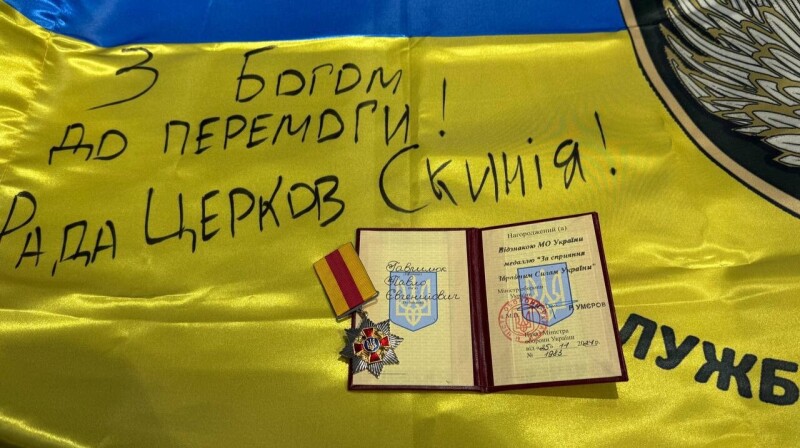 З БОГОМ
ДО ПЕРЕМОГИ!
РАДА ЦЕРКОВ СКИНІЯ!
Гаврилюк
Павло
Євгенійович
Нагороджений (а)
Відзнакою МО України
медаллю "За сприяння
Збройним Силам України"
Міністр
України
Р. УМЄРОВ
Наказ Міністра
оборони України
від
№ 1983
ЛУЖБ